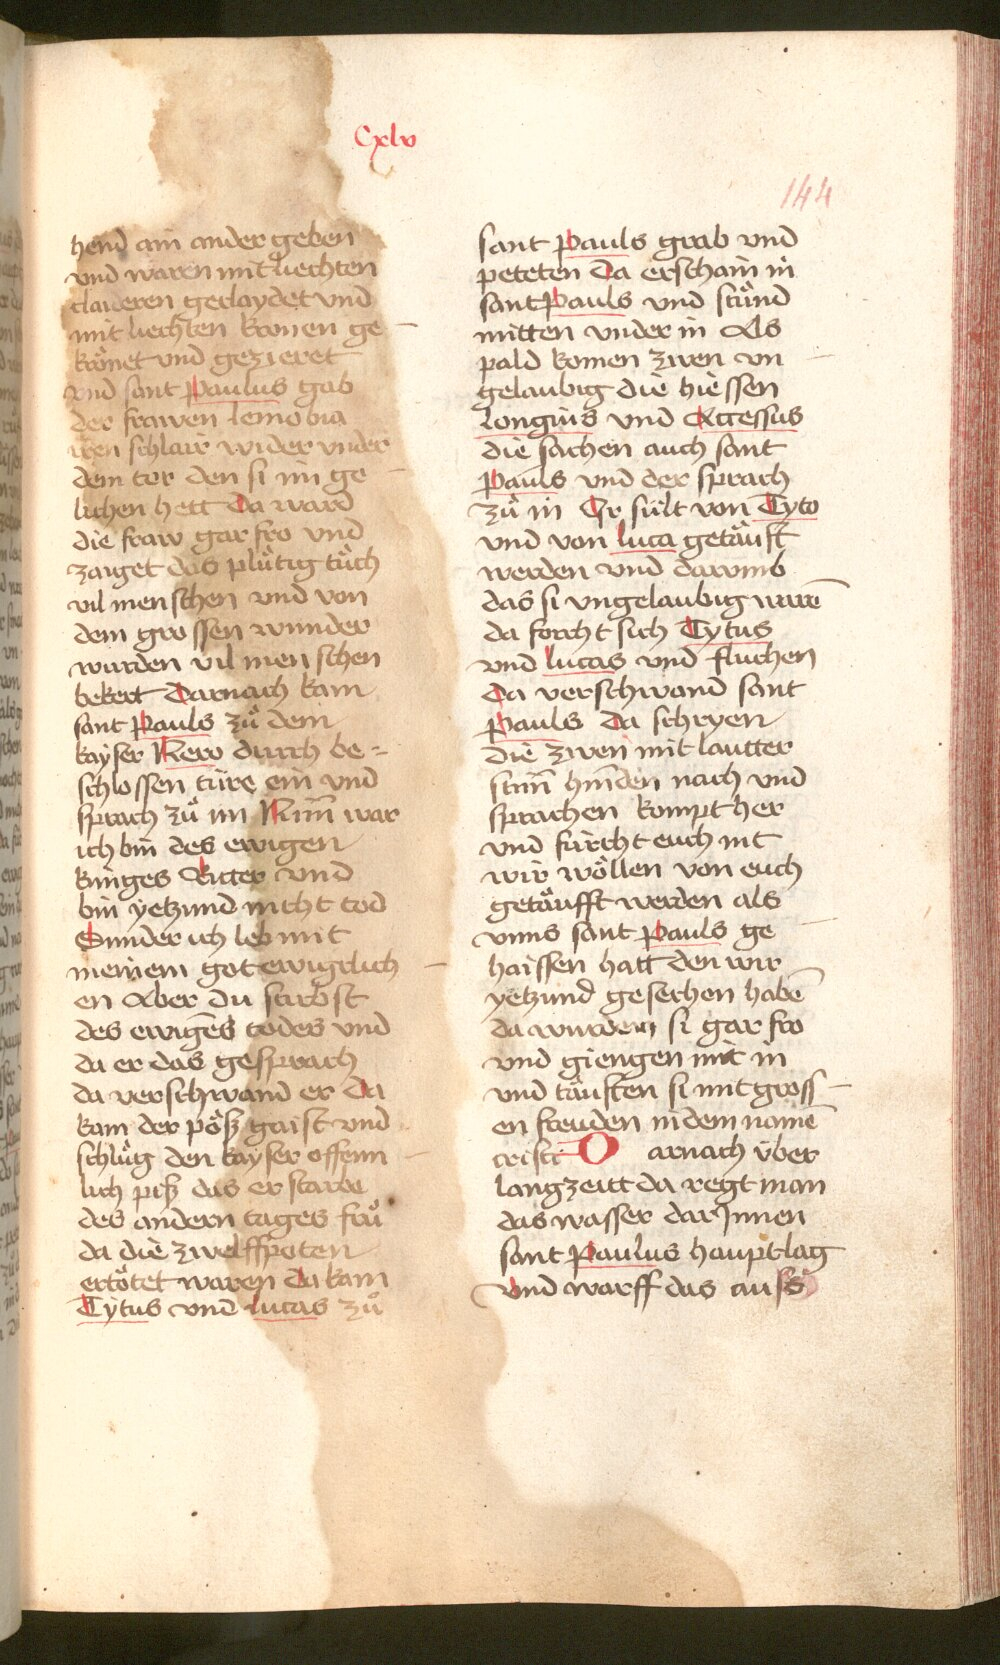 Cxlv
144
hend ain ander geben
vnd waren mit liechten
claideren geclaydet vnd
mit liechten kronen ge
krönet vnd gezieret
vnd sant Paulus gab
der frawen lemobia
iren schlair wider vnder
dem tor den si im ge
lichen hett Da ward
die fraw gar fro vnd
zaiget das plůtig tůch
vil menschen vnd von
dem grossen wunder
wurden vil menschen
bekert Darnach kam
sant Pauls zů dem
kayser Nero durch be=
schlossen türe ein vnd
sprach zů im Nim̄ war
ich bin des ewigen
kinges Ritter vnd
bin yetzund nicht tod
Sunder ich leb mit
meinem got ewigclich
en Aber du stirbst
des ewigen̄s todes vnd
da er das gesprach
da verschwand er Da
kam der pöß gaist vnd
schlůg den kayser offenn
lich piß das er starbe
des andern tages frů
da die zwelffpoten
ertötet waren Da kam
Tytus vnd lucas zů
sant Pauls grab vnd
peteten Da erschain in
sant Pauls vnd stůnd
mitten vnder in Als
pald komen zwen vn
gelaubig die hiessen
Longinis vnd Accessus
die sachen auch sant
Pauls vnd der sprach
zů in Er sült von Tyto
vnd von luca getäuft
werden vnd darumb
das si vngelaubig warē
da forcht sich Tytus
vnd lucas vnd fluchen
Da verschwand sant
Pauls Da schryen
die zwen mit lautter
stim̄ hinden nach vnd
sprachen kompt her
vnd fürcht euch nit
wir wöllen von euch
getäufft werden als
vnns sant Pauls ge
haissen hatt den wir
yetzund gesechen habē
da wurden si gar fro
vnd giengen mit in
vnd täuften si mit gross
en freuden in dem namē
cristi Darnach über
lang zeitt da regt man
das wasser dar Jnnen
sant Paulus haupt lag
vnd warff das auss